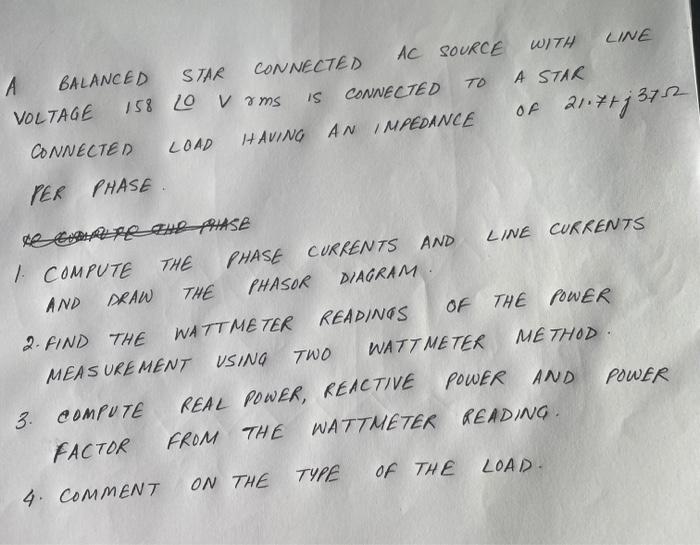 A BALANCED STAR CONNECTED AC SOURCE WITH LINE
VOLTAGE 158 ∠0 V rms IS CONNECTED TO A STAR
CONNECTED LOAD HAVING AN IMPEDANCE OF 21.7+j37Ω
PER PHASE.
1. COMPUTE THE PHASE CURRENTS AND LINE CURRENTS
AND DRAW THE PHASOR DIAGRAM.
2. FIND THE WATTMETER READINGS OF THE POWER
MEASUREMENT USING TWO WATTMETER METHOD.
3. COMPUTE REAL POWER, REACTIVE POWER AND POWER
FACTOR FROM THE WATTMETER READING.
4. COMMENT ON THE TYPE OF THE LOAD.